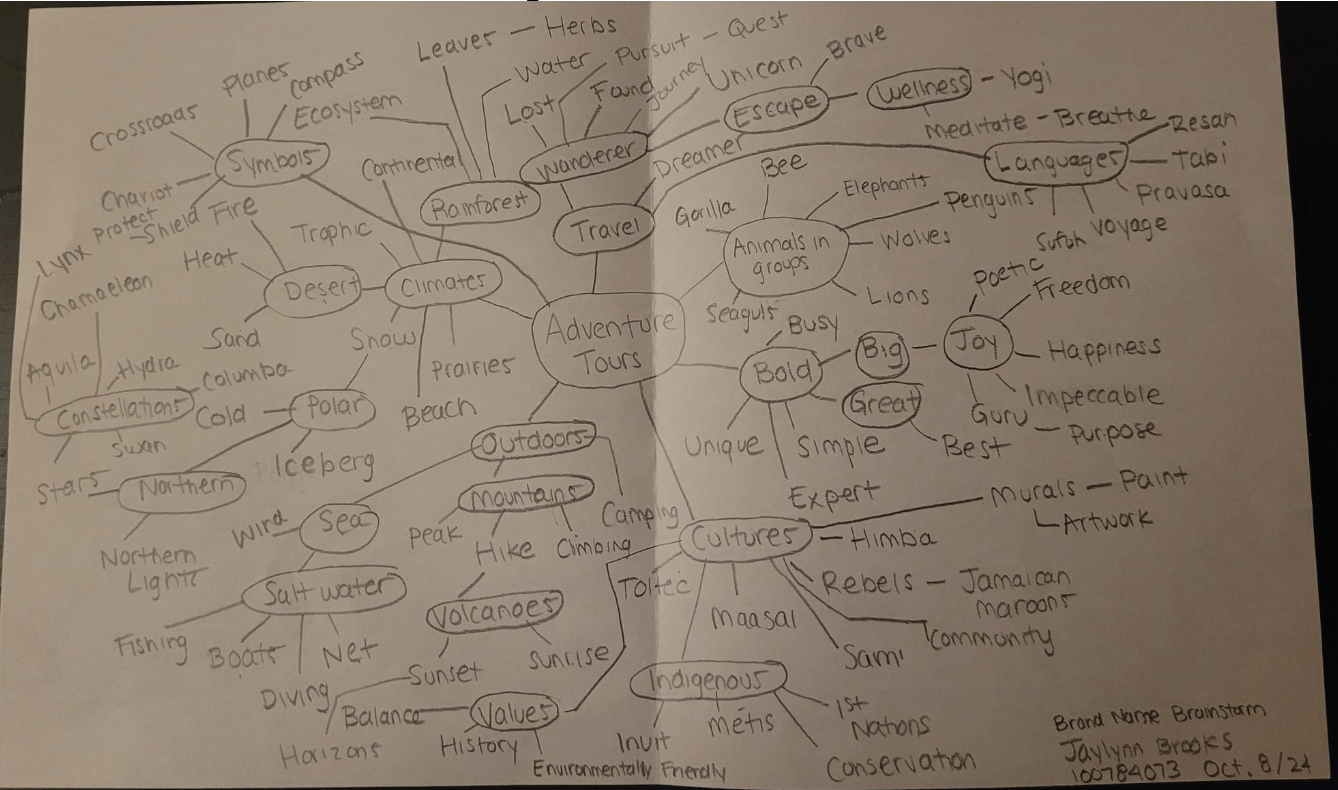 Leaves - Herbs
Water
Pursuit - Quest
Lost
Found
Journey
Unicorn
Brave
Escape
Wellness - Yogi
Meditate - Breathe
Wanderer
Dreamer
Travel
Languages
Resan
Tabi
Pravasa
Voyage
Safah
Planes
Compass
Ecosystem
Crossroads
Symbols
Chariot
Protect
-Shield
Fire
Continental
Rainforest
Trophic
Climates
Desert
Heat
Sand
Snow
Prairies
Beach
Lynx
Chamaeleon
Aquila
Hydra
Columba
Constellations
Swan
Stars
Cold
Polar
Iceberg
Northern
Northern
Lights
Adventure
Tours
Bee
Elephants
Penguins
Gorilla
Animals in
groups
Wolves
Lions
Seaguls
Busy
Bold
Big
Great
Best
Unique
Simple
Expert
Joy
Poetic
Freedom
Happiness
Impeccable
Guru
Purpose
Outdoors
Mountains
Camping
Peak
Hike
Climbing
Volcanoes
Sunset
Sunrise
Wind
Sea
Salt water
Fishing
Boats
Diving
Net
Horizons
Balance
Values
History
Environmentally Friendly
Cultures
Murals - Paint
Artwork
Himba
Rebels - Jamaican
maroons
Community
Sami
Maasai
Toltec
Indigenous
Inuit
Métis
1st
Nations
Conservation
Brand Name Brainstorm
Jaylynn Brooks
100784073 Oct. 8/24